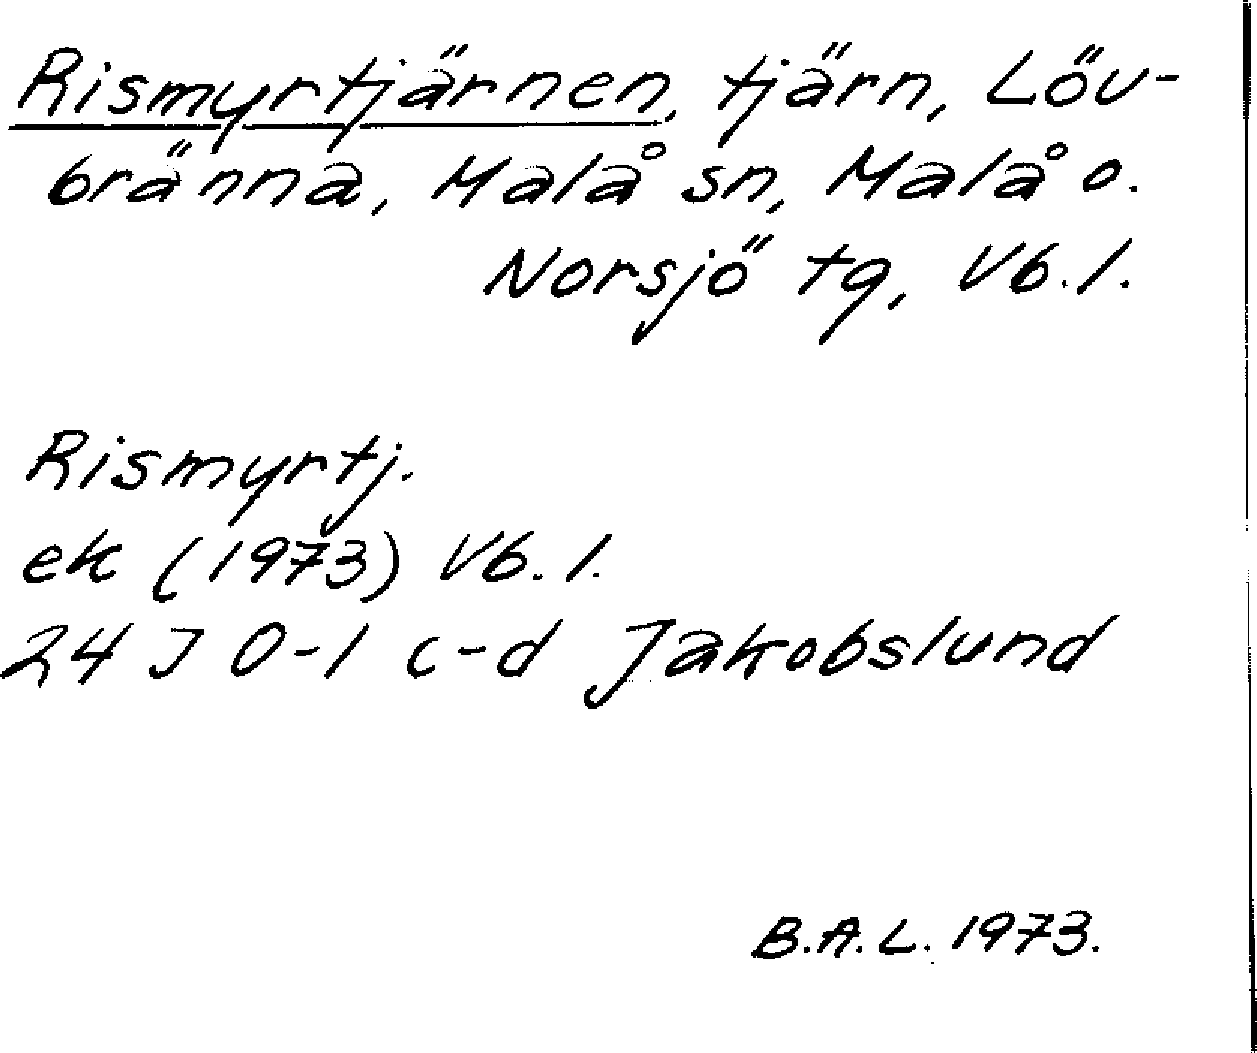 Rismyrtjärnen, tjärn, Löv-
bränna, Malå sn, Malå o.
Norsjö tg, Vb. l.
Rismyrtj.
ek (1973) Vb. l.
24 J 0-1 c-d Jakobslund
B.A.L. 1973.